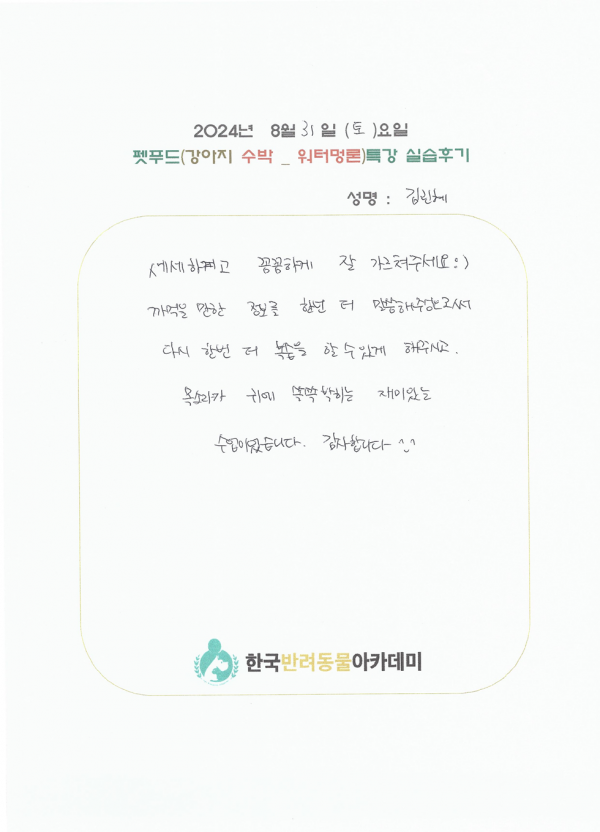 2024년 8월 31일 (토)요일
펫푸드(강아지 수박 _ 워터멍론)특강 실습후기
성명 : 김린혜
세세하고 꼼꼼하게 잘 가르쳐주세요:)
까먹을 만한 정보를 한번 더 말씀해주고서
다시 한번 더 복습을 할 수 있게 해주시고.
목소리가 귀에 쏙쏙 박히는 재미있는
수업이었습니다. 감사합니다 ^^
한국반려동물아카데미